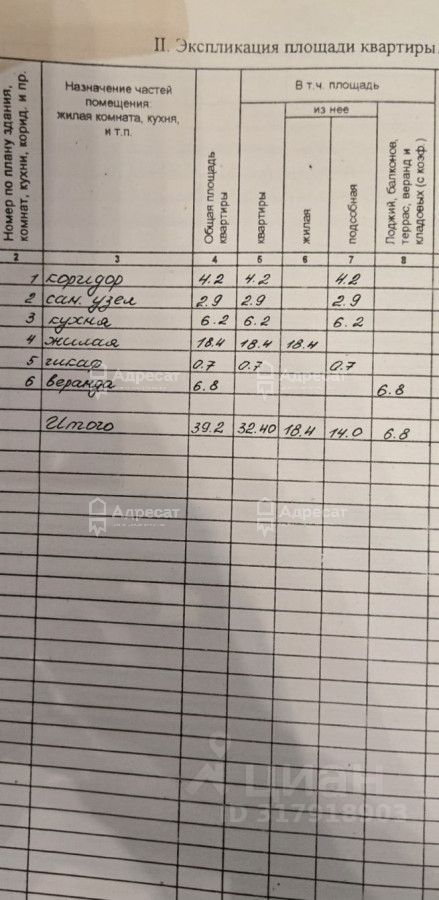 II. Экспликация площади квартиры.
Номер по плану здания,
комнат, кухни, корид. и пр.
Назначение частей
помещения:
жилая комната, кухня,
и т.п.
Общая площадь
квартиры
В т.ч. площадь
квартиры
из нее
жилая
подсобная
Лоджий, балконов,
террас, веранд и
кладовых (с коэф.)
2 3 4 5 6 7 8
1 коридор 4.2 4.2 4.2
2 сан. узел 2.9 2.9 2.9
3 кухня 6.2 6.2 6.2
4 жилая 18.4 18.4 18.4
5 шкаф 0.7 0.7 0.7
6 веранда 6.8 6.8
Итого 39.2 32.40 18.4 14.0 6.8
Адресат Адресат
Адресат Адресат
ЦИАН
ID 317918003